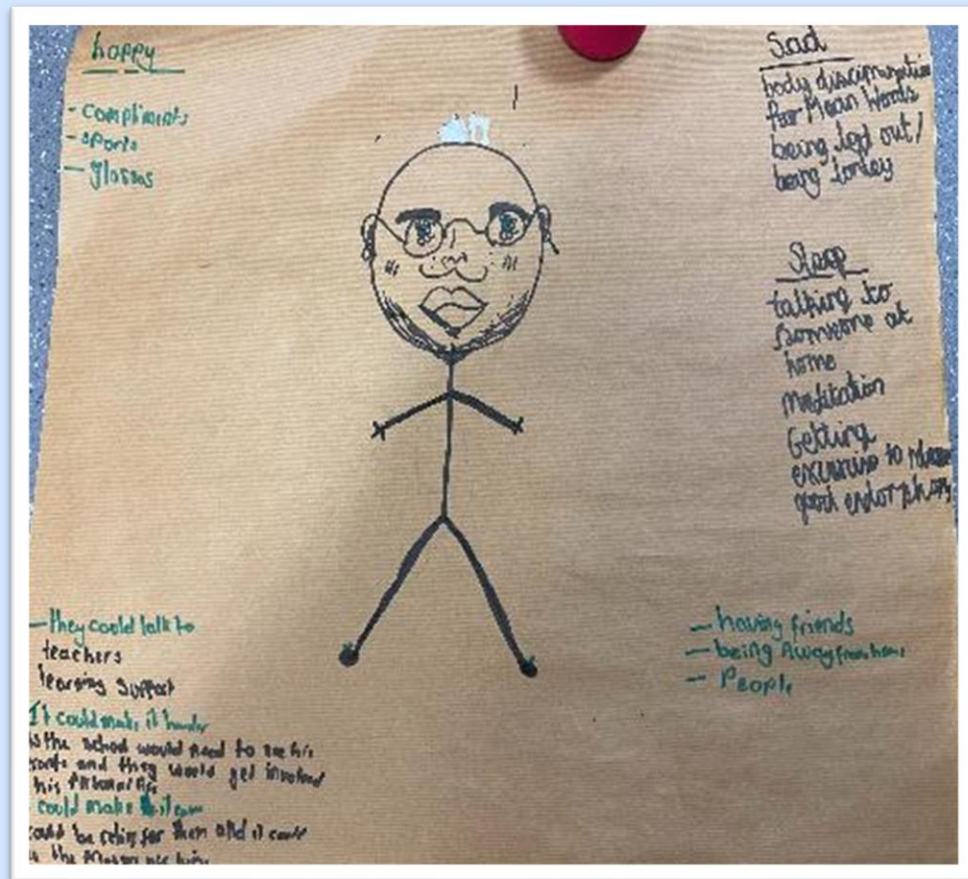 happy
- compliments
- sports
- glasses
Sad
body discrimination
for Mean Words
being left out/
being lonley
Sleep
talking to
someone at
home
Meditation
Getting
exercise to release
good endorphins
- they could talk to
teachers
learning support
It could make it harder
the school would need to
and they would get involved
his
could make it
could be for them and it could
the
- having friends
- being Away from home
- People